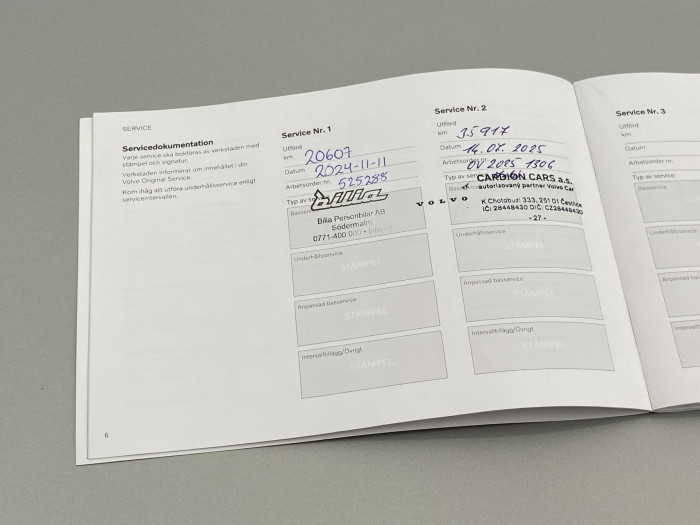 SERVICE
Servicedokumentation
Varje service ska bokföras av verkstaden med
stämpel och signatur.
Verkstaden informerar om innehållet i din
Volvo Original Service.
Kom ihåg att utföra underhållsservice enligt
serviceintervallen.
6
Service Nr. 1
Utförd
km 20607
Datum 2024-11-11
Arbetsorder nr. 525288
Typ av
Basservice
Bilia
Bilia Personbilar AB
Södermalm
0771-400 000
Underhållsservice
STÄMPEL
Anpassad basservice
STÄMPEL
Intervalltillägg/Övrigt
STÄMPEL
Service Nr. 2
Utförd
km 35917
Datum 14.07.2025
Arbetsorder nr. OV 2025 1306
Typ av
CARDION CARS a.s.
autorizovaný partner Volvo Car
VOLVO
K Chotobuzi 333, 251 01 Čestlice
IČ: 28448430 DIČ: CZ28448430
- 27 -
Underhållsservice
STÄMPEL
Anpassad basservice
STÄMPEL
Intervalltillägg/Övrigt
STÄMPEL
Service Nr. 3
Utförd
km
Datum
Arbetsorder nr.
Typ av service
Basservice